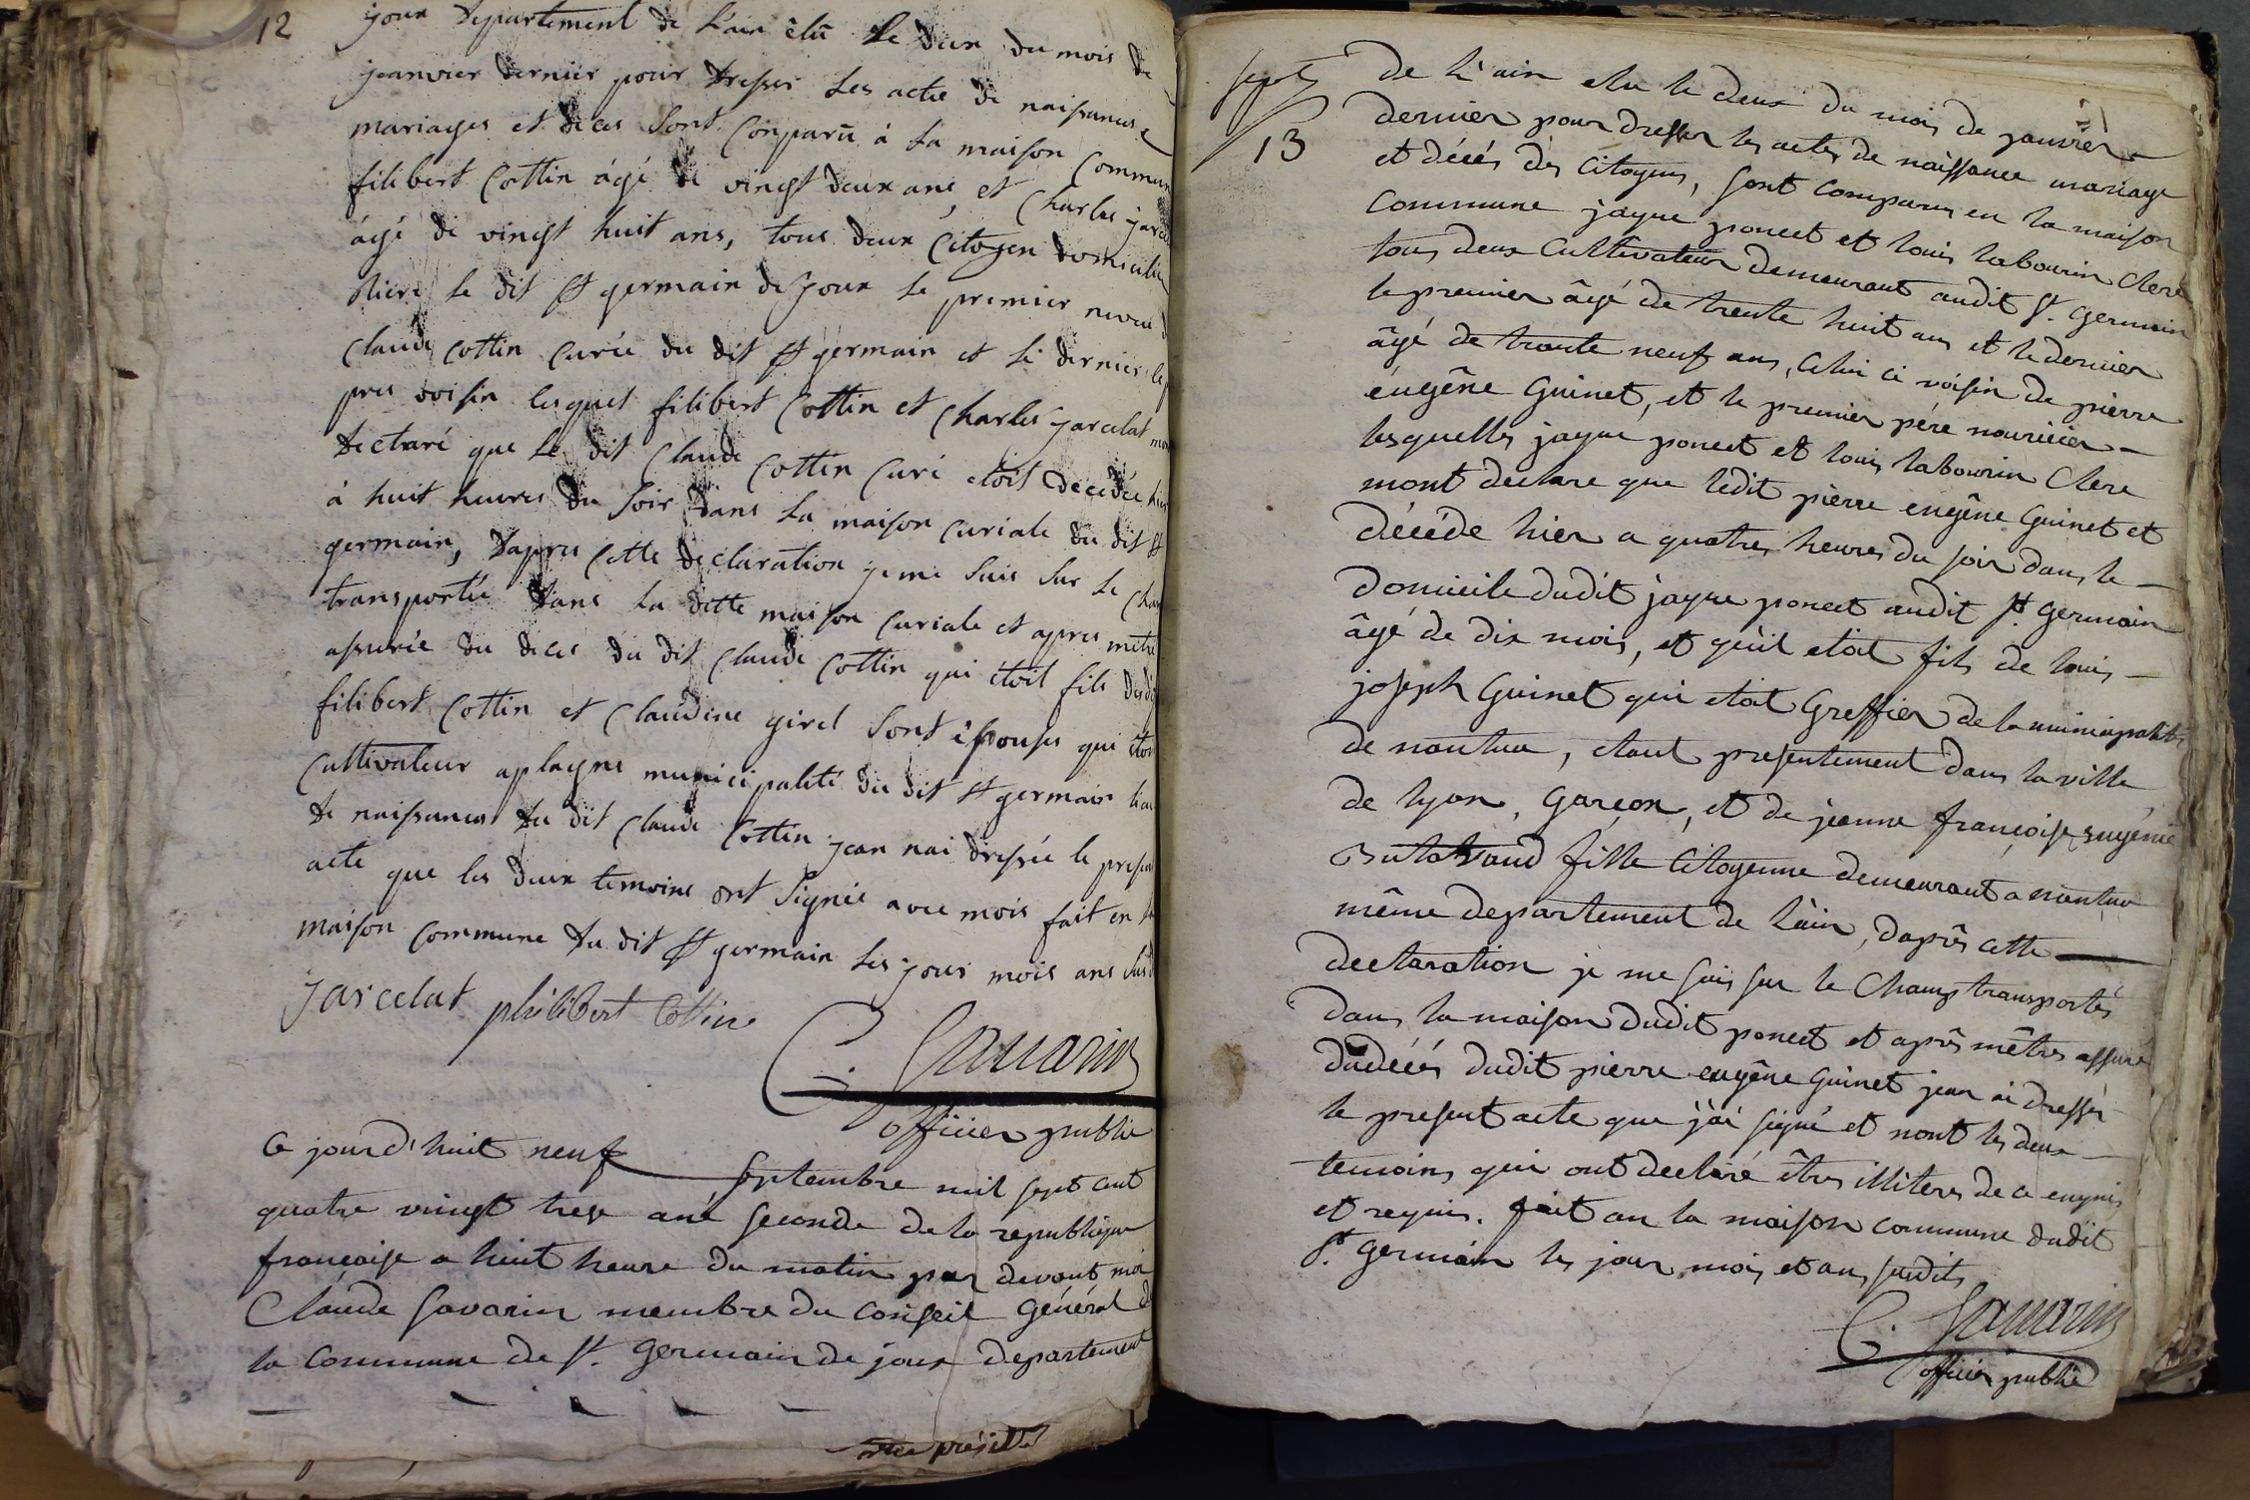 12
joux departement de Lain élu le deux du mois de
jeanvier dernier pour dresser Les acte de naissances
mariages et deces sont Comparü à la maison Commun
filibert Cottin âgé de vingt deux ans, et Charles jarcelat
âgé de vingt huit ans, tous deux Citoyen domicilié
rière le dit st germain de joux le premier neveu d
Claude Cottin Curée du dit st germain et le dernier le p
pres voisin lesquel filibert Cottin et Charles jarcelat mon
declaré que le dit Claude Cottin Curé etoit decedée hier
à huit heures du soir dans la maison Curiale du dit st
germain, dapres Cette declaration je me suis sur le Cham
transportée dans la ditte maison Curiale et apres metre
assurée du deces du dit Claude Cottin qui étoit fils de
filibert Cottin et Claudine girel sont épouse qui étoi
Cultivateur aplagne municipalité du dit st germain lieu
de naissances du dit Claude Cottin jean nai dressée le presen
acte que les deux temoins ont signée avec mois fait en la
maison commune du dit st germain les jour mois ans sus d
jarcelat philibert Cottin
C. Savarin
officier public
Ce jourd'huit neuf septembre mil sept cent
quatre vingt treze ané seconde de la republique
française a huit heure du matin par devant moi
Claude Savarin membre du conseil général de
la commune de st. germain de joux departement
sept
13
de L'ain elu le deux du mois de janvier
dernier pour dresser les actes de naissance mariage
et décés des Citoyens, sont comparus en la maison
commune jaque poncet et louis labourin Clere
tous deux Cultivateur demeurant audit st. germain
le premier âgé de trente huit ans et le dernier
âgé de trante neuf ans, celui ci voisin de pierre
eugêne Guinet, et le premier pére nouricier
lesquelles jaque poncet et louis labourin Clere
mont declare que ledit pierre eugêne Guinet et
décéde hier a quatres heures du soir dans le
domicile dudit jaque poncet audit st. germain
âgé de dix mois, et qu'il etoit fils de louis
joseph Guinet qui etoit Greffier de la municipalité
de nantua, etant presentement dans la ville
de lyon, Garçon, et de jeanne françoise eugénie
fille Citoyenne demeurant a nantua
même departement de lain, daprês cette
declaration je me suis sur le Champ transportés
dans la maison dudit poncet et aprês mêtres assuré
dudécés dudit pierre eugêne Guinet jean ai dressér
le present acte que j'ai signé et nont les deux
temoins qui ont declaré êtres illiteres de ce enquis
et requis. fait an la maison commune dudit
st. Germain les jour mois et ans susdits
C. Savarin
officier public